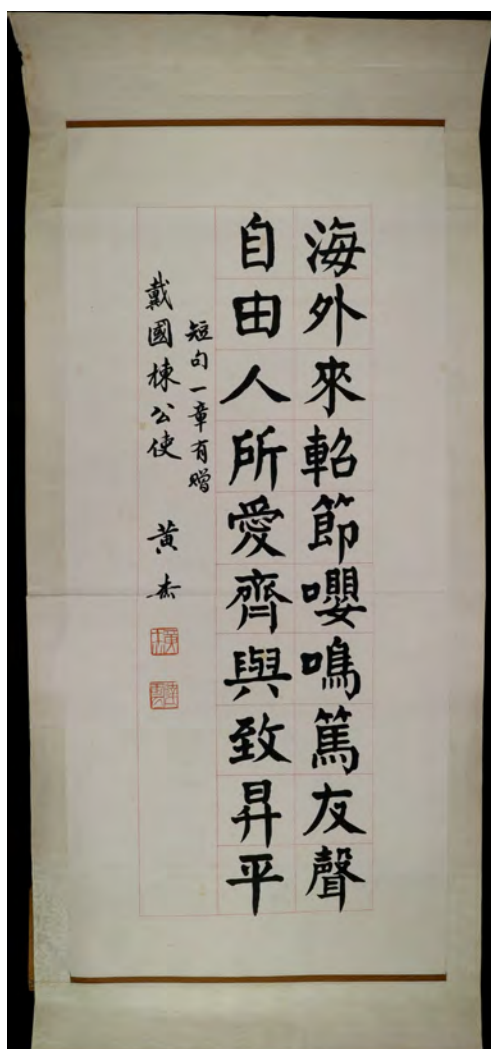 海外來軺節嚶鳴篤友聲
自由人所愛齊與致昇平
短句一章有贈
戴國棟公使 黃杰